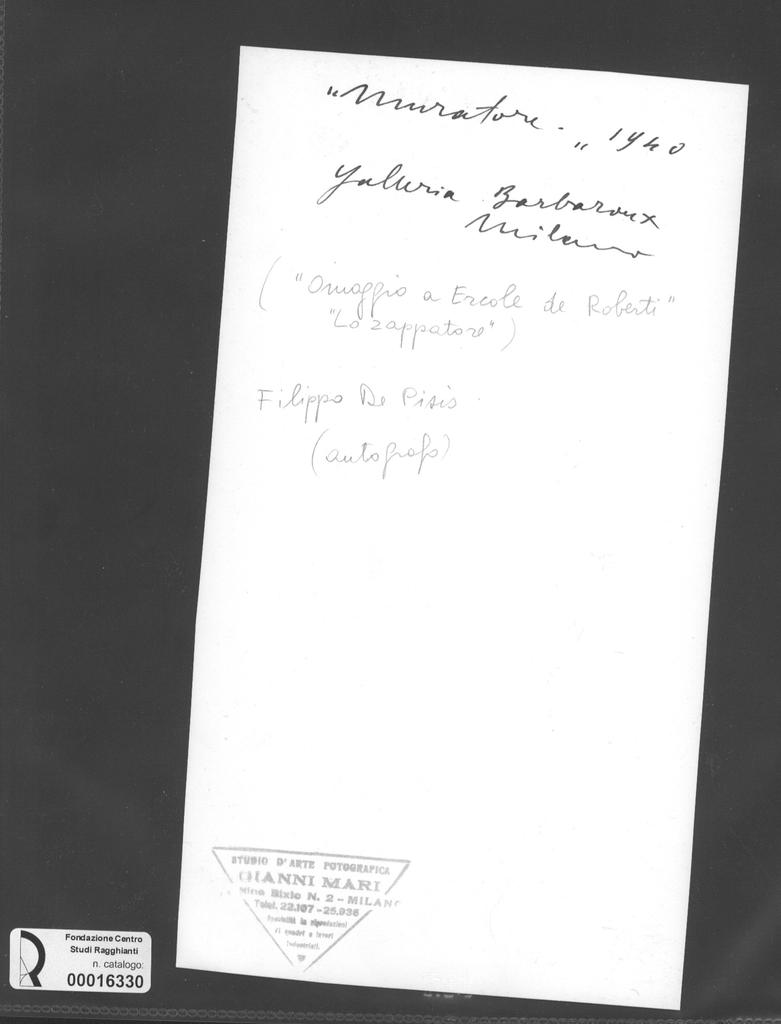 "Muratore." 1940
Galleria Barbaroux
Milano
("Omaggio a Ercole de Roberti"
"Lo zappatore")
Filippo De Pisis
(autografo)
STUDIO D'ARTE FOTOGRAFICA
GIANNI MARI
Nino Bixio N. 2 - MILANO
Telef. 22.107 - 25.936
Specialità in riproduzioni
di quadri e lavori
Industriali.
Fondazione Centro
Studi Ragghianti
n. catalogo:
00016330